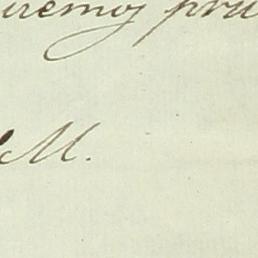 uremos pru
M.